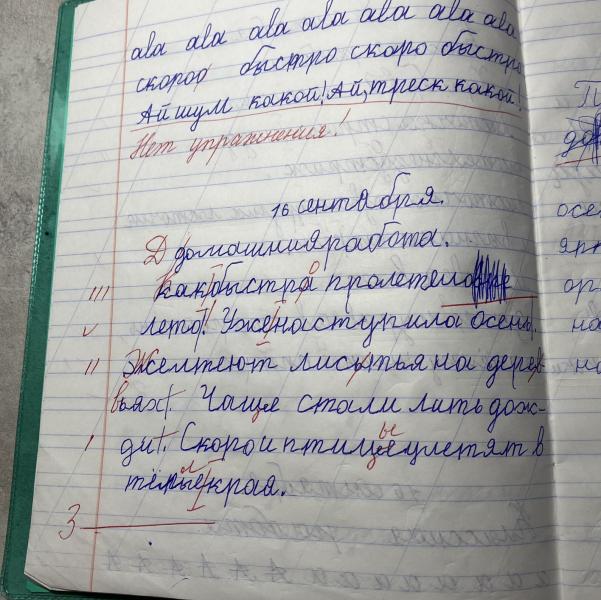 ава ава ава ава ава ава ава
скороо быстро скоро быстро
Ай шум какой! Ай, треск какой!
Нет упражнения!
16 сентября.
Д домашния работа.
Какбыстра о пролетело
лето! Уженаступила осень.
Желтеют лисытья на дерев
вьях. Чаще стали лить дож-
ди. Скорои птицые ы улетят в
тёплые л края.
3